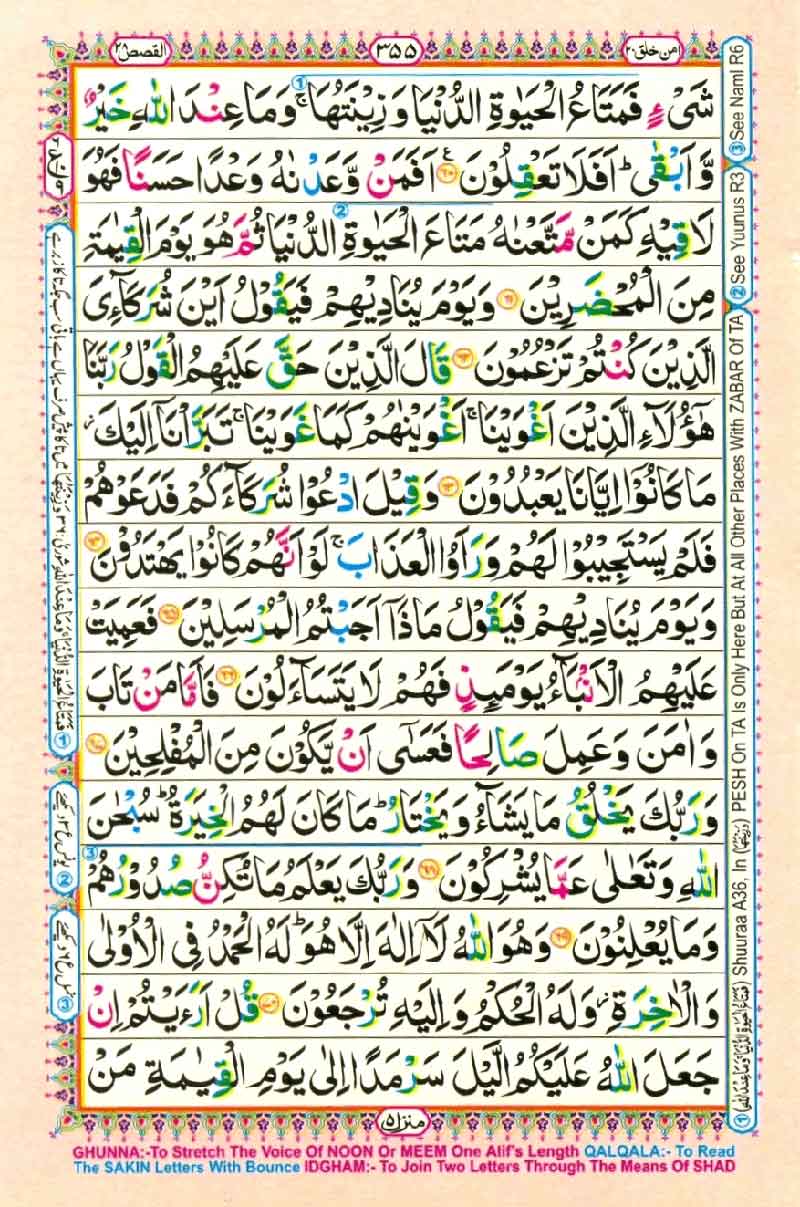 القصص ٢٨
٣٥٥
امن خلق ٢٠
شَىْءٍ فَمَتَاعُ الْحَيٰوةِ الدُّنْيَا وَزِيْنَتُهَا ۚ وَمَا عِنْدَ اللّٰهِ خَيْرٌ
وَّاَبْقٰى ؕ اَفَلَا تَعْقِلُوْنَ ۶۰ اَفَمَنْ وَّعَدْنٰهُ وَعْدًا حَسَنًا فَهُوَ
لَاقِيْهِ كَمَنْ مَّتَّعْنٰهُ مَتَاعَ الْحَيٰوةِ الدُّنْيَا ثُمَّ هُوَ يَوْمَ الْقِيٰمَةِ
مِنَ الْمُحْضَرِيْنَ ۶۱ وَيَوْمَ يُنَادِيْهِمْ فَيَقُوْلُ اَيْنَ شُرَكَآءِىَ
الَّذِيْنَ كُنْتُمْ تَزْعُمُوْنَ ۶۲ قَالَ الَّذِيْنَ حَقَّ عَلَيْهِمُ الْقَوْلُ رَبَّنَا
هٰٓؤُلَآءِ الَّذِيْنَ اَغْوَيْنَا ۚ اَغْوَيْنٰهُمْ كَمَا غَوَيْنَا ۚ تَبَرَّاْنَآ اِلَيْكَ ؗ
مَا كَانُوْۤا اِيَّانَا يَعْبُدُوْنَ ۶۳ وَقِيْلَ ادْعُوْا شُرَكَآءَكُمْ فَدَعَوْهُمْ
فَلَمْ يَسْتَجِيْبُوْا لَهُمْ وَرَاَوُا الْعَذَابَ ۚ لَوْ اَنَّهُمْ كَانُوْا يَهْتَدُوْنَ ۶۴
وَيَوْمَ يُنَادِيْهِمْ فَيَقُوْلُ مَاذَاۤ اَجَبْتُمُ الْمُرْسَلِيْنَ ۶۵ فَعَمِيَتْ
عَلَيْهِمُ الْاَنْۢبَآءُ يَوْمَئِذٍ فَهُمْ لَا يَتَسَآءَلُوْنَ ۶۶ فَاَمَّا مَنْ تَابَ
وَاٰمَنَ وَعَمِلَ صَالِحًا فَعَسٰۤى اَنْ يَّكُوْنَ مِنَ الْمُفْلِحِيْنَ ۶۷
وَرَبُّكَ يَخْلُقُ مَا يَشَآءُ وَيَخْتَارُ ؕ مَا كَانَ لَهُمُ الْخِيَرَةُ ؕ سُبْحٰنَ
اللّٰهِ وَتَعٰلٰى عَمَّا يُشْرِكُوْنَ ۶۸ وَرَبُّكَ يَعْلَمُ مَا تُكِنُّ صُدُوْرُهُمْ
وَمَا يُعْلِنُوْنَ ۶۹ وَهُوَ اللّٰهُ لَاۤ اِلٰهَ اِلَّا هُوَ ؕ لَهُ الْحَمْدُ فِى الْاُوْلٰى
وَالْاٰخِرَةِ ؗ وَلَهُ الْحُكْمُ وَاِلَيْهِ تُرْجَعُوْنَ ۷۰ قُلْ اَرَءَيْتُمْ اِنْ
جَعَلَ اللّٰهُ عَلَيْكُمُ الَّيْلَ سَرْمَدًا اِلٰى يَوْمِ الْقِيٰمَةِ مَنْ
منزل ٥
① (فَمَتَاعُ الْحَيٰوةِ الدُّنْيَا وَمَا عِنْدَ اللّٰهِ) Shuuraa A36, In (وَزِيْنَتُهَا) PESH On TA Is Only Here But At All Other Places With ZABAR Of TA
② See Yuunus R3
③ See Naml R6
GHUNNA:-To Stretch The Voice Of NOON Or MEEM One Alif's Length QALQALA:- To Read
The SAKIN Letters With Bounce IDGHAM:- To Join Two Letters Through The Means Of SHAD